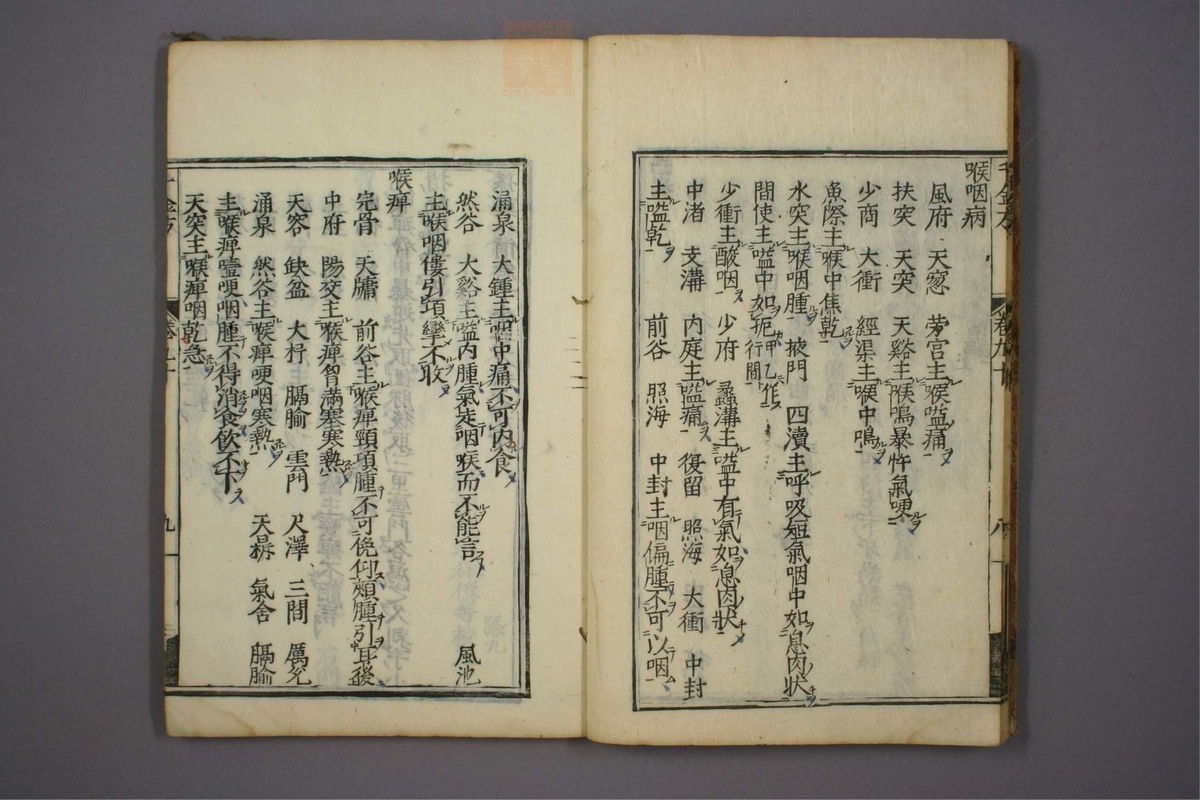 喉咽病
風府 天窓 勞宮主喉嗌痛
扶突 天突 天谿主喉鳴暴忤氣哽
少商 大衝 經渠主喉中鳴
魚際主喉中焦乾
水突主喉咽腫 掖門 四瀆主呼吸短氣咽中如息肉狀
間使主嗌中如扼甲乙作行間
少衝主酸咽 少府 蠡溝主嗌中有氣如息肉狀
中渚 支溝 內庭主嗌痛 復留 照海 大衝 中封
主嗌乾 前谷 照海 中封主咽偏腫不可以咽
涌泉 大鍾主咽中痛不可內食
然谷 大谿主嗌內腫氣走咽喉而不能言 風池
主喉咽僂引項攣不收
喉痺
完骨 天牖 前谷主喉痺頸項腫不可俛仰頰腫引耳後
中府 陽交主喉痺胷滿塞寒熱
天容 缺盆 大杼 膈腧 雲門 尺澤 三間 厲兌
涌泉 然谷主喉痺哽咽寒熱 天鼎 氣舍 膈腧
主喉痺噎哽咽腫不得消食飲不下
天突主喉痺咽乾急
千金方
卷九十
八
九